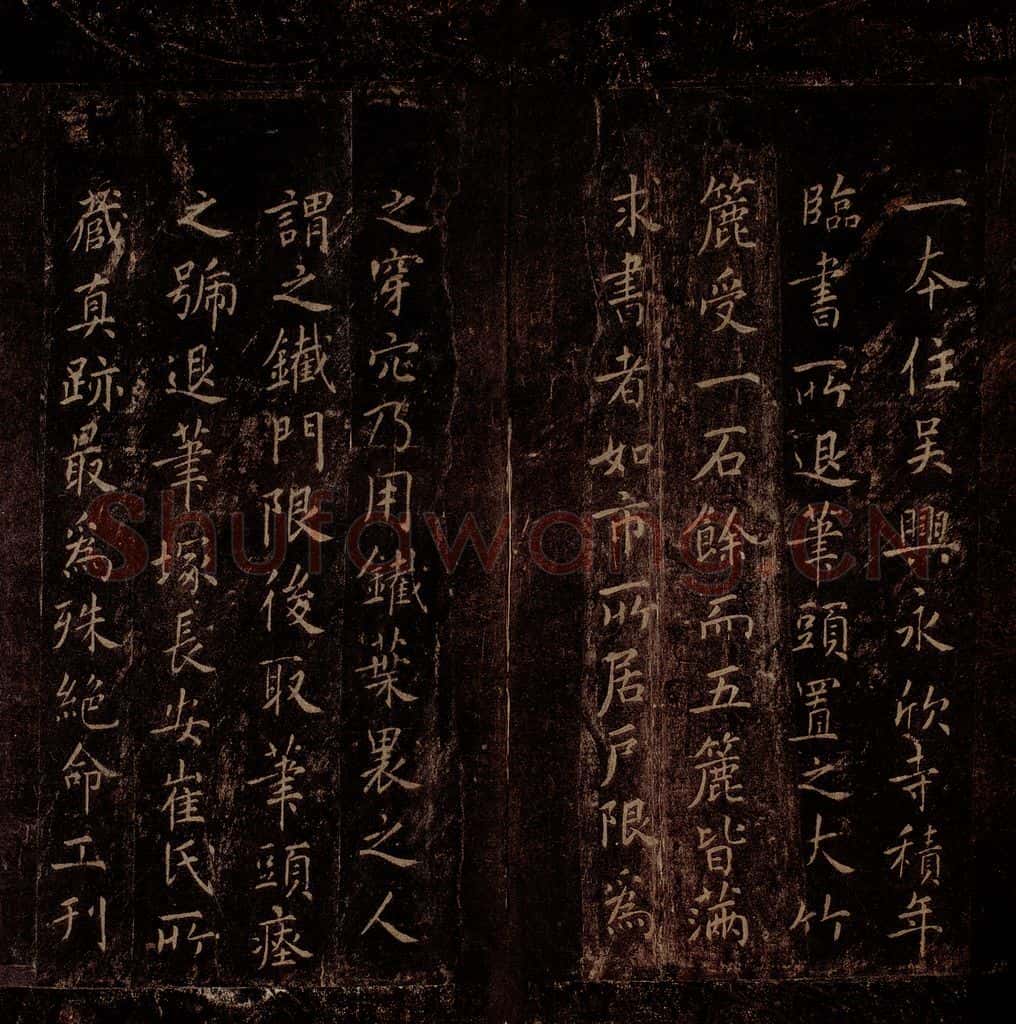 一本住吳興永欣寺積年
臨書所退筆頭置之大竹
簏受一石餘而五簏皆滿
求書者如市所居戶限為
之穿穴乃用鐵葉裹之人
謂之鐵門限後取筆頭瘞
之號退筆塚長安崔氏所
藏真跡最為殊絕命工刊
Shufawang.CN